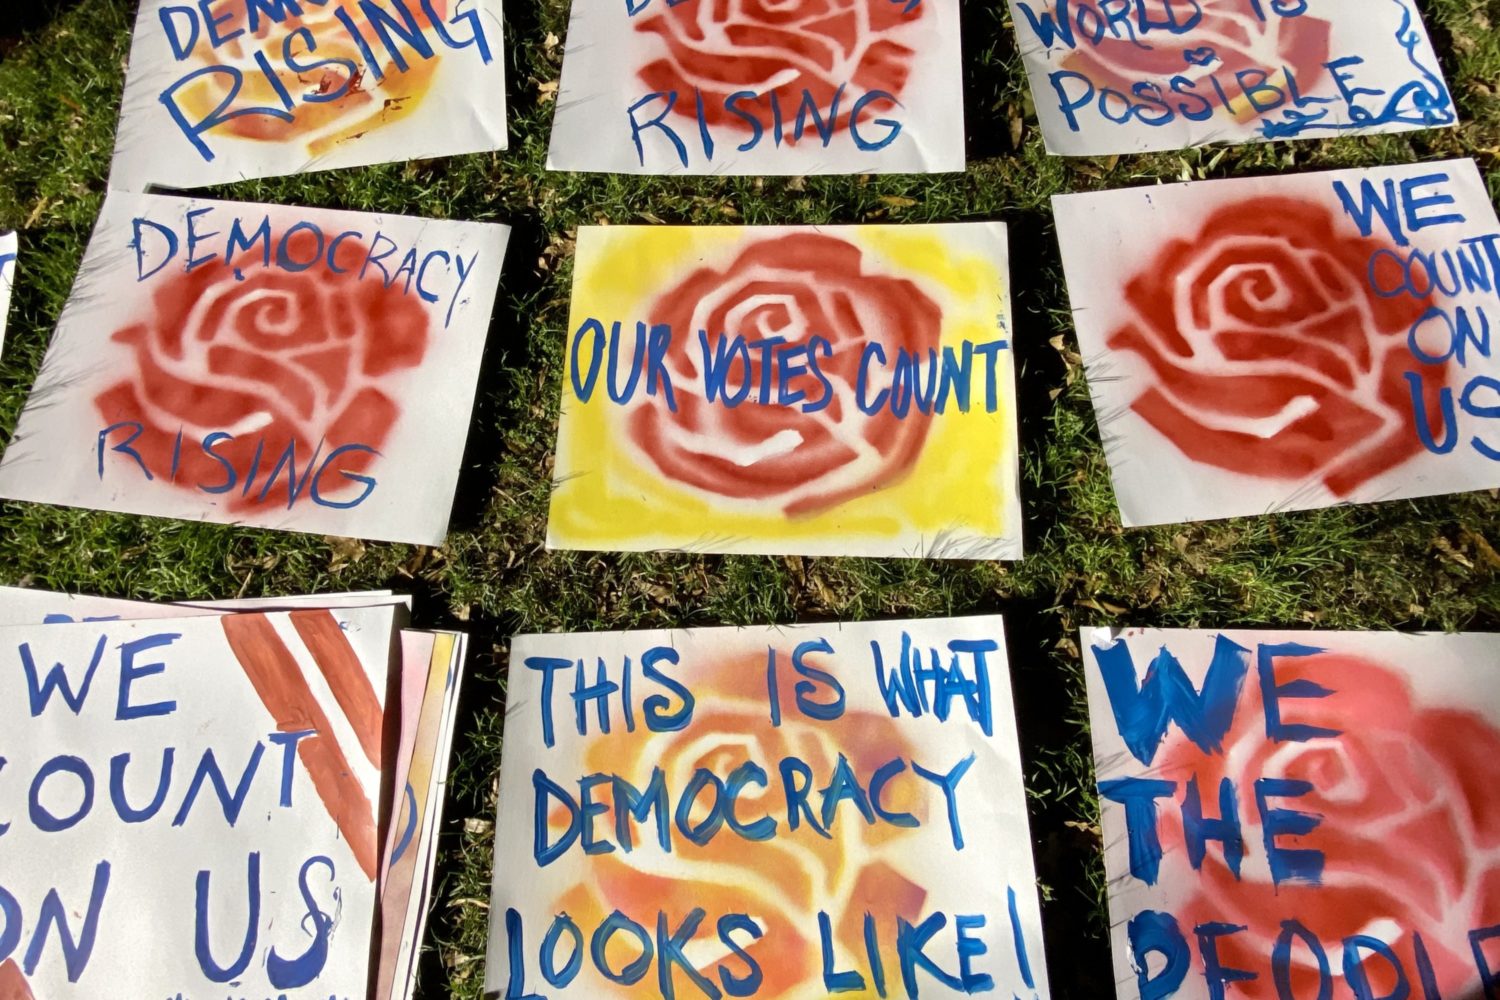 RISING
RISING
WORLD IS
POSSIBLE
DEMOCRACY
RISING
OUR VOTES COUNT
WE
COUNT
ON
US
WE
COUNT
ON US
THIS IS WHAT
DEMOCRACY
LOOKS LIKE!
WE
THE
PEOPLE